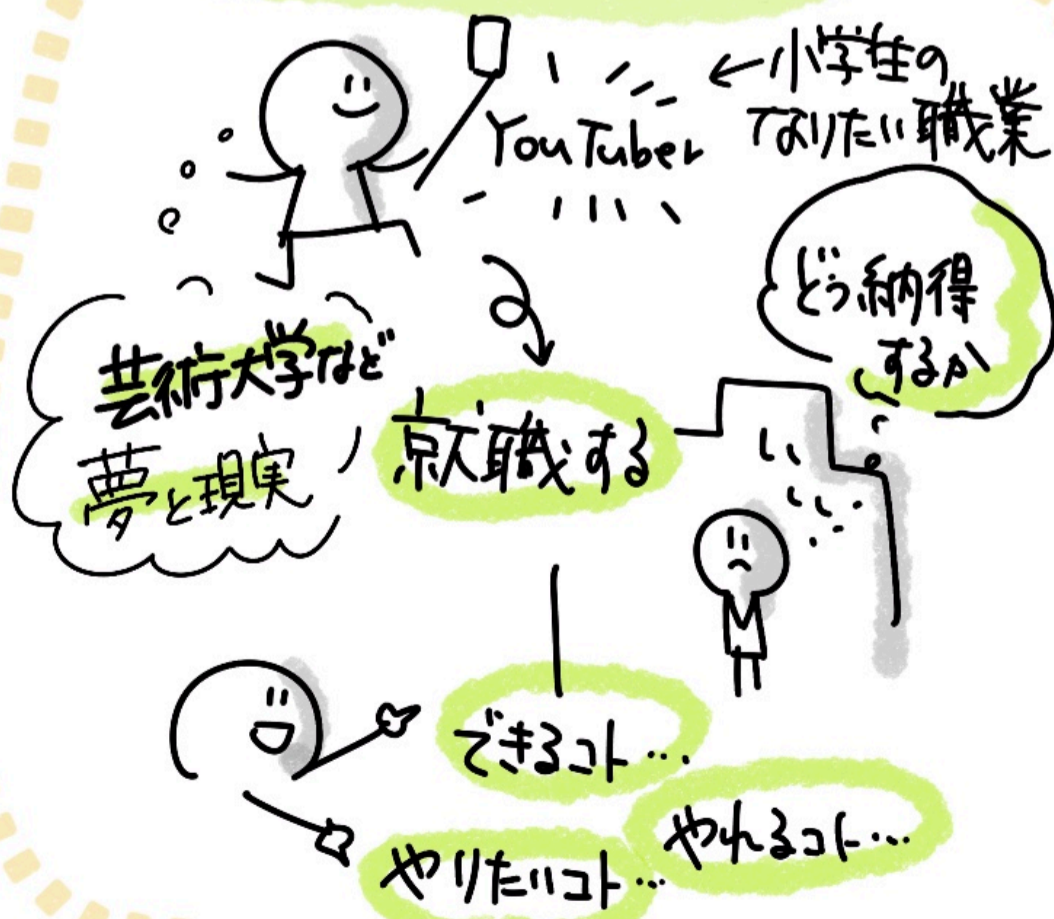 YouTuber
←小学生の
なりたい職業
どう納得
するか
芸術大学など
夢と現実
就職する
できるコト…
やれるコト…
やりたいコト…